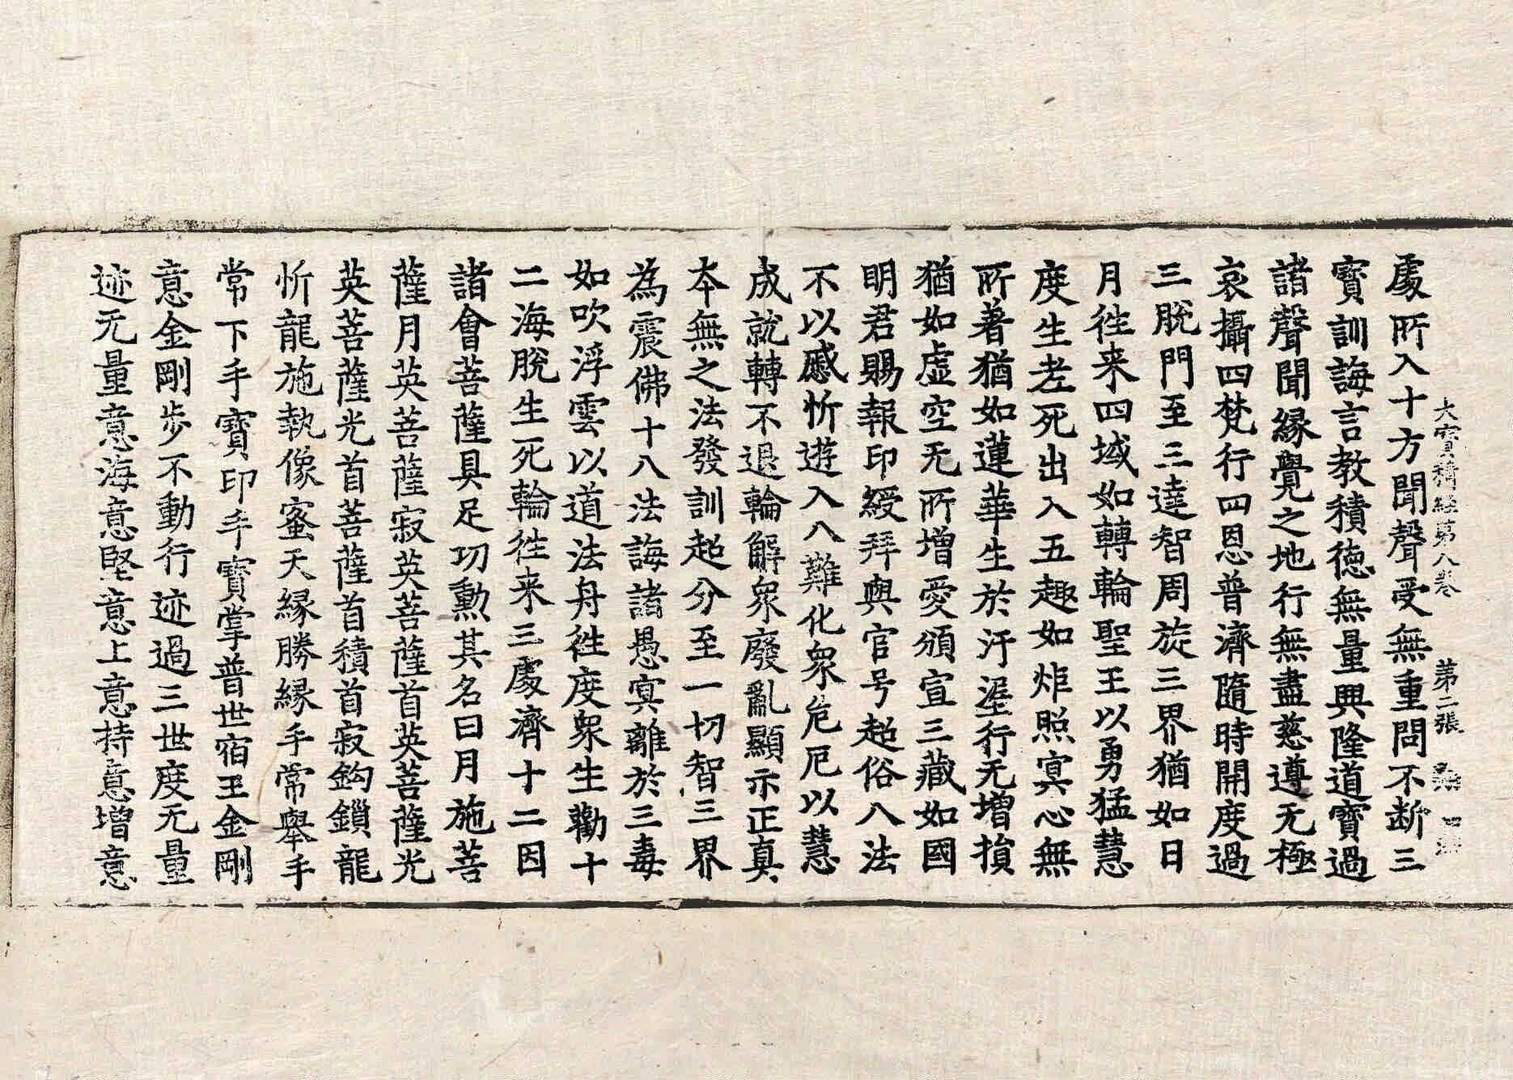 大寶積經第八卷　第二張
處所入十方聞聲受無重問不断三
寳訓誨言教積徳無量興隆道寳過
諸聲聞縁覺之地行無盡慈遵无極
哀攝四梵行四恩普濟隨時開度過
三脫門至三達智周旋三界猶如日
月徃来四域如轉輪聖王以勇猛慧
度生老死出入五趣如炬照冥心無
所著猶如蓮華生於汙埿行无增損
猶如虛空无所增愛頒宣三藏如國
明君賜報印綬拜與官号超俗八法
不以慼忻遊入八難化衆危厄以慧
成就轉不退輪解衆廢亂顯示正真
本無之法發訓超分至一切智三界
為震佛十八法誨諸愚冥離於三毒
如吹浮雲以道法舟徃度衆生勸十
二海脫生死輪徃来三處濟十二因
諸會菩薩具足功勳其名曰月施菩
薩月英菩薩寂英菩薩首英菩薩光
英菩薩光首菩薩首積首寂鈎鎖龍
忻龍施執像蜜天縁勝縁手常舉手
常下手寶印手寶掌普世宿王金剛
意金剛步不動行迹過三世度无量
迹无量意海意堅意上意持意增意